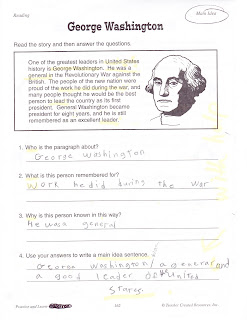 Reading
Main Idea
George Washington
Read the story and then answer the questions.
One of the greatest leaders in United States
history is George Washington. He was a
general in the Revolutionary War against the
British. The people of the new nation were
proud of the work he did during the war, and
many people thought he would be the best
person to lead the country as its first
president. General Washington became
president for eight years, and he is still
remembered as an excellent leader.
1. Who is the paragraph about?
George Washington
2. What is this person remembered for?
Work he did during the war
3. Why is this person known in this way?
He was a general
4. Use your answers to write a main idea sentence.
George Washington a general and
a good leader of United
States.
Practice and Learn
©Teacher Created Resources, Inc.